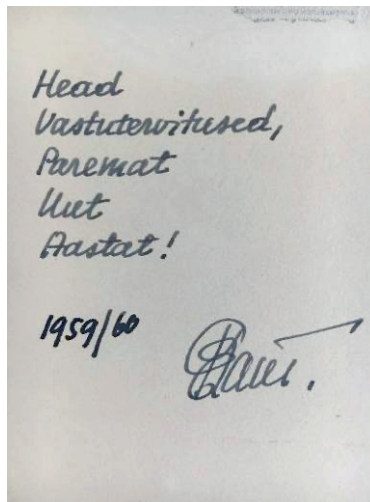 Head
Vastutervitused,
Paremat
Uut
Aastat!
1959/60